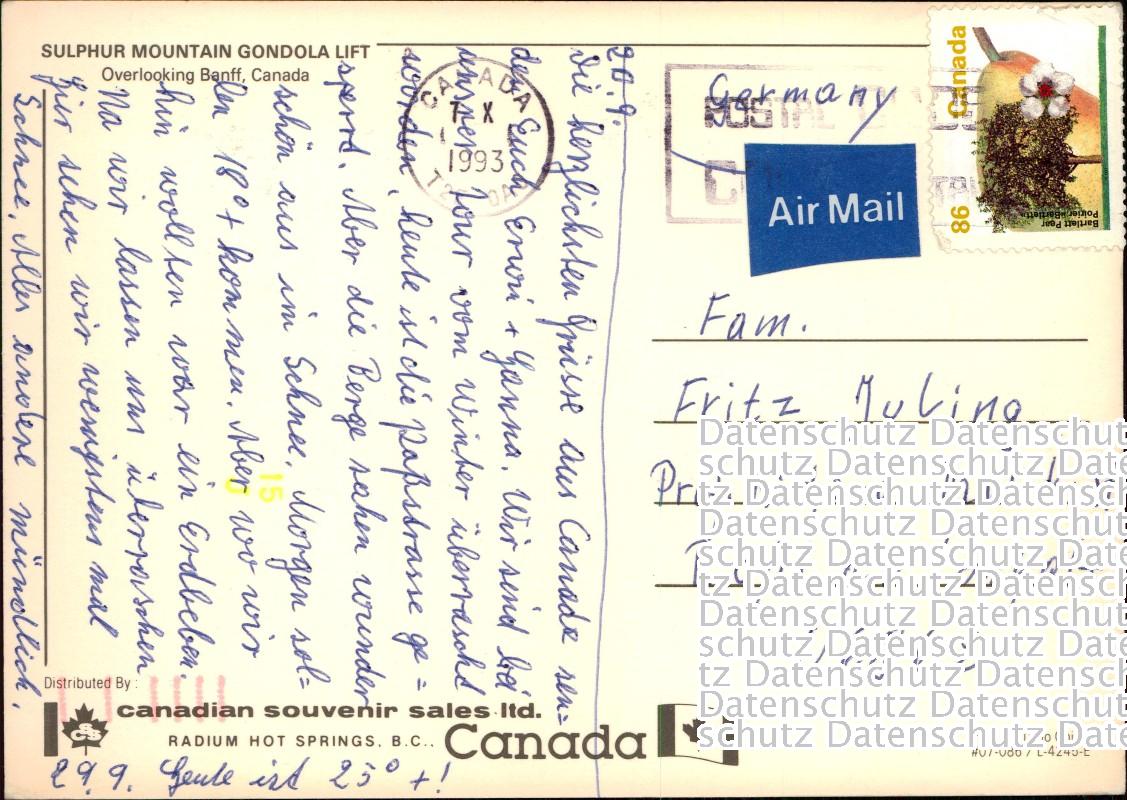 SULPHUR MOUNTAIN GONDOLA LIFT
Overlooking Banff, Canada
20.9.
Die herzlichsten Grüsse aus Canada sen=
den Euch Erwin + Hanna. Wir sind bei
unserer Tour vom Winter überrascht
worden, heute ist die Passstrasse ge=
sperrt. Aber die Berge sahen wunder
schön aus im Schnee. Morgen sol=
len 18°+ kommen. Aber wo wir
hin wollten war ein Erdbeben.
Na wir lassen uns überraschen
hier sehen wir wenigstens mal
Schnee. Alles andere mündlich.
29.9. Heute ist 25° +!
Distributed By :
canadian souvenir sales ltd.
RADIUM HOT SPRINGS, B.C..
Canada
CANADA
1993
POSTAL
Germany
Air Mail
Canada
86
Bartlett Pear
Poirier «Bartlett»
Fam.
Fritz
15
Datenschutz Datenschutz
schutz Datenschutz Date
tz Datenschutz Datensch
Datenschutz Datenschutz
schutz Datenschutz Date
tz Datenschutz Datensch
Datenschutz Datenschutz
schutz Datenschutz Date
tz Datenschutz Datensch
Datenschutz Datenschutz
schutz Datenschutz Date